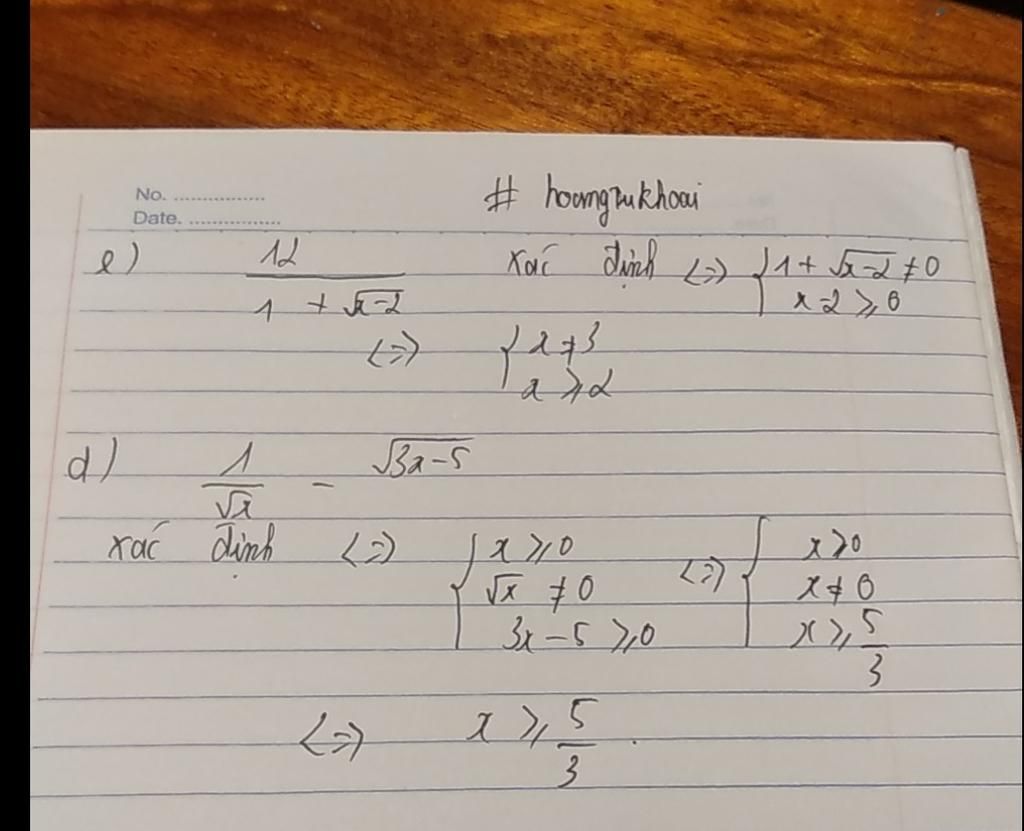 No. ................
Date. ................
# hoangzukhoai
e) 12 / (1 + √(x-2)) xác định <=> { 1 + √(x-2) ≠ 0
x-2 ⩾ 0
<=> { x ≠ 3
x ⩾ 2
d) 1/√x - √(3x-5)
xác định <=> { x ⩾ 0 <=> { x ⩾ 0
√x ≠ 0 x ≠ 0
3x-5 ⩾ 0 x ⩾ 5/3
<=> x ⩾ 5/3 .